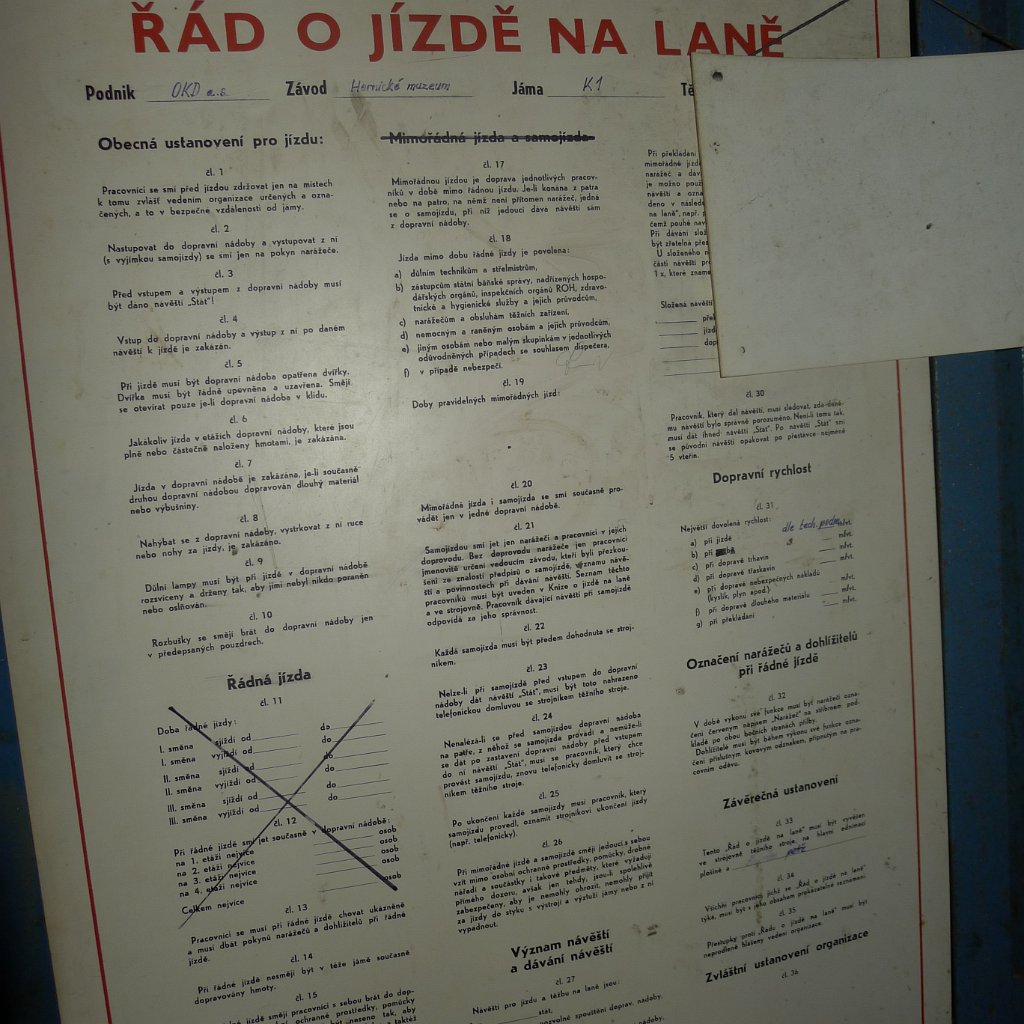 ŘÁD O JÍZDĚ NA LANĚ
Podnik OKD a.s. Závod Hornické muzeum Jáma K1 Tě
Obecná ustanovení pro jízdu:
čl. 1
Pracovníci se smí před jízdou zdržovat jen na místech
k tomu zvlášť vedením organizace určených a ozna-
čených, a to v bezpečné vzdálenosti od jámy.
čl. 2
Nastupovat do dopravní nádoby a vystupovat z ní
(s vyjímkou samojízdy) se smí jen na pokyn narážeče.
čl. 3
Před vstupem a výstupem z dopravní nádoby musí
být dáno návěští „Stát"!
čl. 4
Vstup do dopravní nádoby a výstup z ní po daném
návěstí k jízdě je zakázán.
čl. 5
Při jízdě musí být dopravní nádoba opatřena dvířky.
Dvířka musí být řádně upevněna a uzavřena. Smějí
se otevírat pouze je-li dopravní nádoba v klidu.
čl. 6
Jakákoliv jízda v etážích dopravní nádoby, které jsou
plně nebo částečně naloženy hmotami, je zakázána.
čl. 7
Jízda v dopravní nádobě je zakázána, je-li současně
druhou dopravní nádobou dopravován dlouhý materiál
nebo výbušniny.
čl. 8
Nahýbat se z dopravní nádoby, vystrkovat z ní ruce
nebo nohy za jízdy, je zakázáno.
čl. 9
Důlní lampy musí být při jízdě v dopravní nádobě
rozsvíceny a drženy tak, aby jimi nebyl nikdo poraněn
nebo oslňován.
čl. 10
Rozbušky se smějí brát do dopravní nádoby jen
v předepsaných pouzdrech.
Řádná jízda
čl. 11
Doba řádné jízdy:
I. směna sjíždí od do
I. směna vyjíždí od do
II. směna sjíždí od do
II. směna vyjíždí od do
III. směna sjíždí od do
III. směna vyjíždí od do
čl. 12
Při řádné jízdě smí jet současně v dopravní nádobě:
na 1. etáži nejvíce osob
na 2. etáži nejvíce osob
na 3. etáži nejvíce osob
na 4. etáži nejvíce
Celkem nejvíce osob
čl. 13
Pracovníci se musí při řádné jízdě chovat ukázněně
a musí dbát pokynů narážečů a dohlížitelů při řádné
jízdě.
čl. 14
Při řádné jízdě nesmějí být v téže jámě současně
dopravovány hmoty.
čl. 15
smějí pracovníci s sebou brát do dop-
ochranné prostředky, pomůcky
neseno tak, aby
taktéž
Mimořádná jízda a samojízda
čl. 17
Mimořádnou jízdou je doprava jednotlivých pracov-
níků v době mimo řádnou jízdu. Je-li konána z patra
nebo na patro, na němž není přítomen narážeč, jedná
se o samojízdu, při níž jedoucí dává návěští sám
z dopravní nádoby.
čl. 18
Jízda mimo dobu řádné jízdy je povolena:
a) důlním technikům a střelmistrům,
b) zástupcům státní báňské správy, nadřízených hospo-
dářských orgánů, inspekčních orgánů ROH, zdravo-
tnické a hygienické služby a jejich průvodcům,
c) narážečům a obsluhám těžních zařízení,
d) nemocným a raněným osobám a jejich průvodcům,
e) jiným osobám nebo malým skupinkám v jednotlivých
odůvodněných případech se souhlasem dispečera,
f) v případě nebezpečí.
čl. 19
Doby pravidelných mimořádných jízd:
čl. 20
Mimořádná jízda i samojízda se smí současně pro-
vádět jen v jedné dopravní nádobě.
čl. 21
Samojízdou smí jet jen narážeči a pracovníci v jejich
doprovodu. Bez doprovodu narážeče jen pracovníci
jmenovitě určení vedoucím závodu, kteří byli přezkou-
šeni ze znalostí předpisů o samojízdě, významu návě-
ští a povinnostech při dávání návěští. Seznam těchto
pracovníků musí být uveden v Knize o jízdě na laně
a ve strojovně. Pracovník dávající návěští při samojízdě
odpovídá za jeho správnost.
čl. 22
Každá samojízda musí být předem dohodnuta se stroj-
níkem.
čl. 23
Nelze-li při samojízdě před vstupem do dopravní
nádoby dát návěští „Stát", musí být toto nahrazeno
telefonickou domluvou se strojníkem těžního stroje.
čl. 24
Nenalézá-li se před samojízdou dopravní nádoba
na patře, z něhož se samojízda provádí a nemůže-li
se dát po zastavení dopravní nádoby před vstupem
do ní návěští „Stát", musí se pracovník, který chce
provést samojízdu, znovu telefonicky domluvit se stroj-
níkem těžního stroje.
čl. 25
Po ukončení každé samojízdy musí pracovník, který
samojízdu provedl, oznámit strojníkovi ukončení jízdy
(např. telefonicky).
čl. 26
Při mimořádné jízdě a samojízdě smějí jedoucí s sebou
vzít mimo osobní ochranné prostředky, pomůcky, drobné
nářadí a součástky i takové předměty, které vyžadují
přímého dozoru, avšak jen tehdy, jsou-li spolehlivě
zabezpečeny, aby je nemohly ohrozit, nemohly přijít
za jízdy do styku s výstrojí a výztuží jámy nebo z ní
vypadnout.
Význam návěští
a dávání návěští
čl. 27
Návěští pro jízdu a těžbu na laně jsou:
stát,
pozvolné spouštění doprav. nádoby,
nádoby,
Při překládání
mimořádné jízd
narážeč a dáv
je možno použí
návěští a ozna
deno v násled
na laně", např. p
čemž pouhé návě
Při dávání slož
být zřetelná přes
U složeného n
části návěští pr
1 x, které zname
Složená návěští
přek
jízd
dop
čl. 30
Pracovník, který dal návěští, musí sledovat, zda daně-
mu návěští bylo správně porozuměno. Není-li tomu tak,
musí dát ihned návěští „Stát". Po návěští „Stát" smí
se původní návěští opakovat po přestávce nejméně
5 vteřin.
Dopravní rychlost
čl. 31
Největší dovolená rychlost:
a) při jízdě dle tech. podm. m/vt.
b) při m/vt.
c) při dopravě trhavin m/vt.
d) při dopravě třaskavin
e) při dopravě nebezpečných nákladů
(kyslík, plyn apod.) m/vt.
f) při dopravě dlouhého materiálu m/vt.
g) při překládání m/vt.
Označení narážečů a dohlížitelů
při řádné jízdě
čl. 32
V době výkonu své funkce musí být narážeči ozna-
čeni červeným nápisem „Narážeč" na stříbrném pod-
kladě po obou bočních stranách přilby.
Dohlížitelé musí být během výkonu své funkce ozna-
čeni příslušným kovovým odznakem, připnutým na pra-
covním oděvu.
Závěrečná ustanovení
čl. 33
Tento „Řád o jízdě na laně" musí být vyvěšen
ve strojovně těžního stroje, na hlavní odnímací
plošině a
čl. 34
Všichni pracovníci, jichž se „Řád o jízdě na laně"
týká, musí být s jeho obsahem prokazatelně seznámeni
čl. 35
Přestupky proti „Řádu o jízdě na laně" musí být
neprodleně hlášeny vedení organizace.
Zvláštní ustanovení organizace
čl. 36